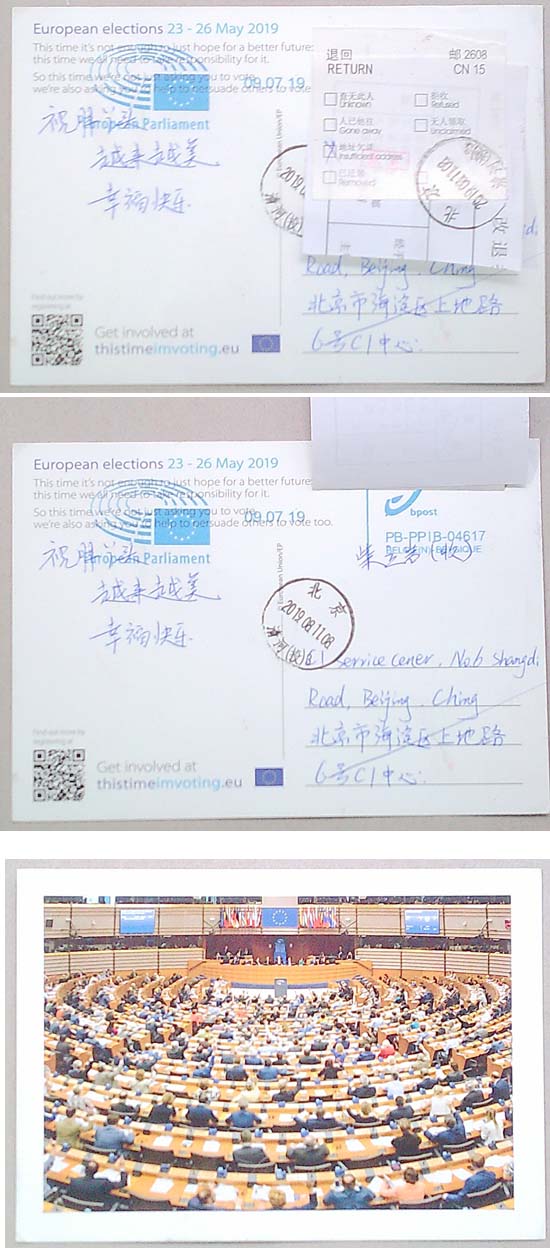 European elections 23 - 26 May 2019
This time it's not enough to just hope for a better future:
this time we all need to take responsibility for it.
So this time we're not just asking you to vote,
we're also asking you to help to persuade others to vote
09.07.19
European Parliament
祝
越来越美
幸福快乐
© European Union/EP
退回
RETURN
邮 2608
CN 15
查无此人
Unknown
拒收
Refused
人已他往
Gone away
无人领取
Unclaimed
地址欠详
Insufficient address
已迁移
Removed
北京
改退
Road, Beijing, China
北京市海淀区上地路
6号C1中心
Find out more by
registering at
Get involved at
thistimeimvoting.eu
European elections 23 - 26 May 2019
This time it's not enough to just hope for a better future:
this time we all need to take responsibility for it.
So this time we're not just asking you to vote,
we're also asking you to help to persuade others to vote too.
09.07.19
European Parliament
祝
越来越美
幸福快乐
© European Union/EP
bpost
PB-PPIB-04617
BELGIE(N)-BELGIQUE
(收)
北京
2019.08.11.08
C1 Service Cener, No6 Shangdi
Road, Beijing, China
北京市海淀区上地路
6号C1中心
Find out more by
registering at
Get involved at
thistimeimvoting.eu